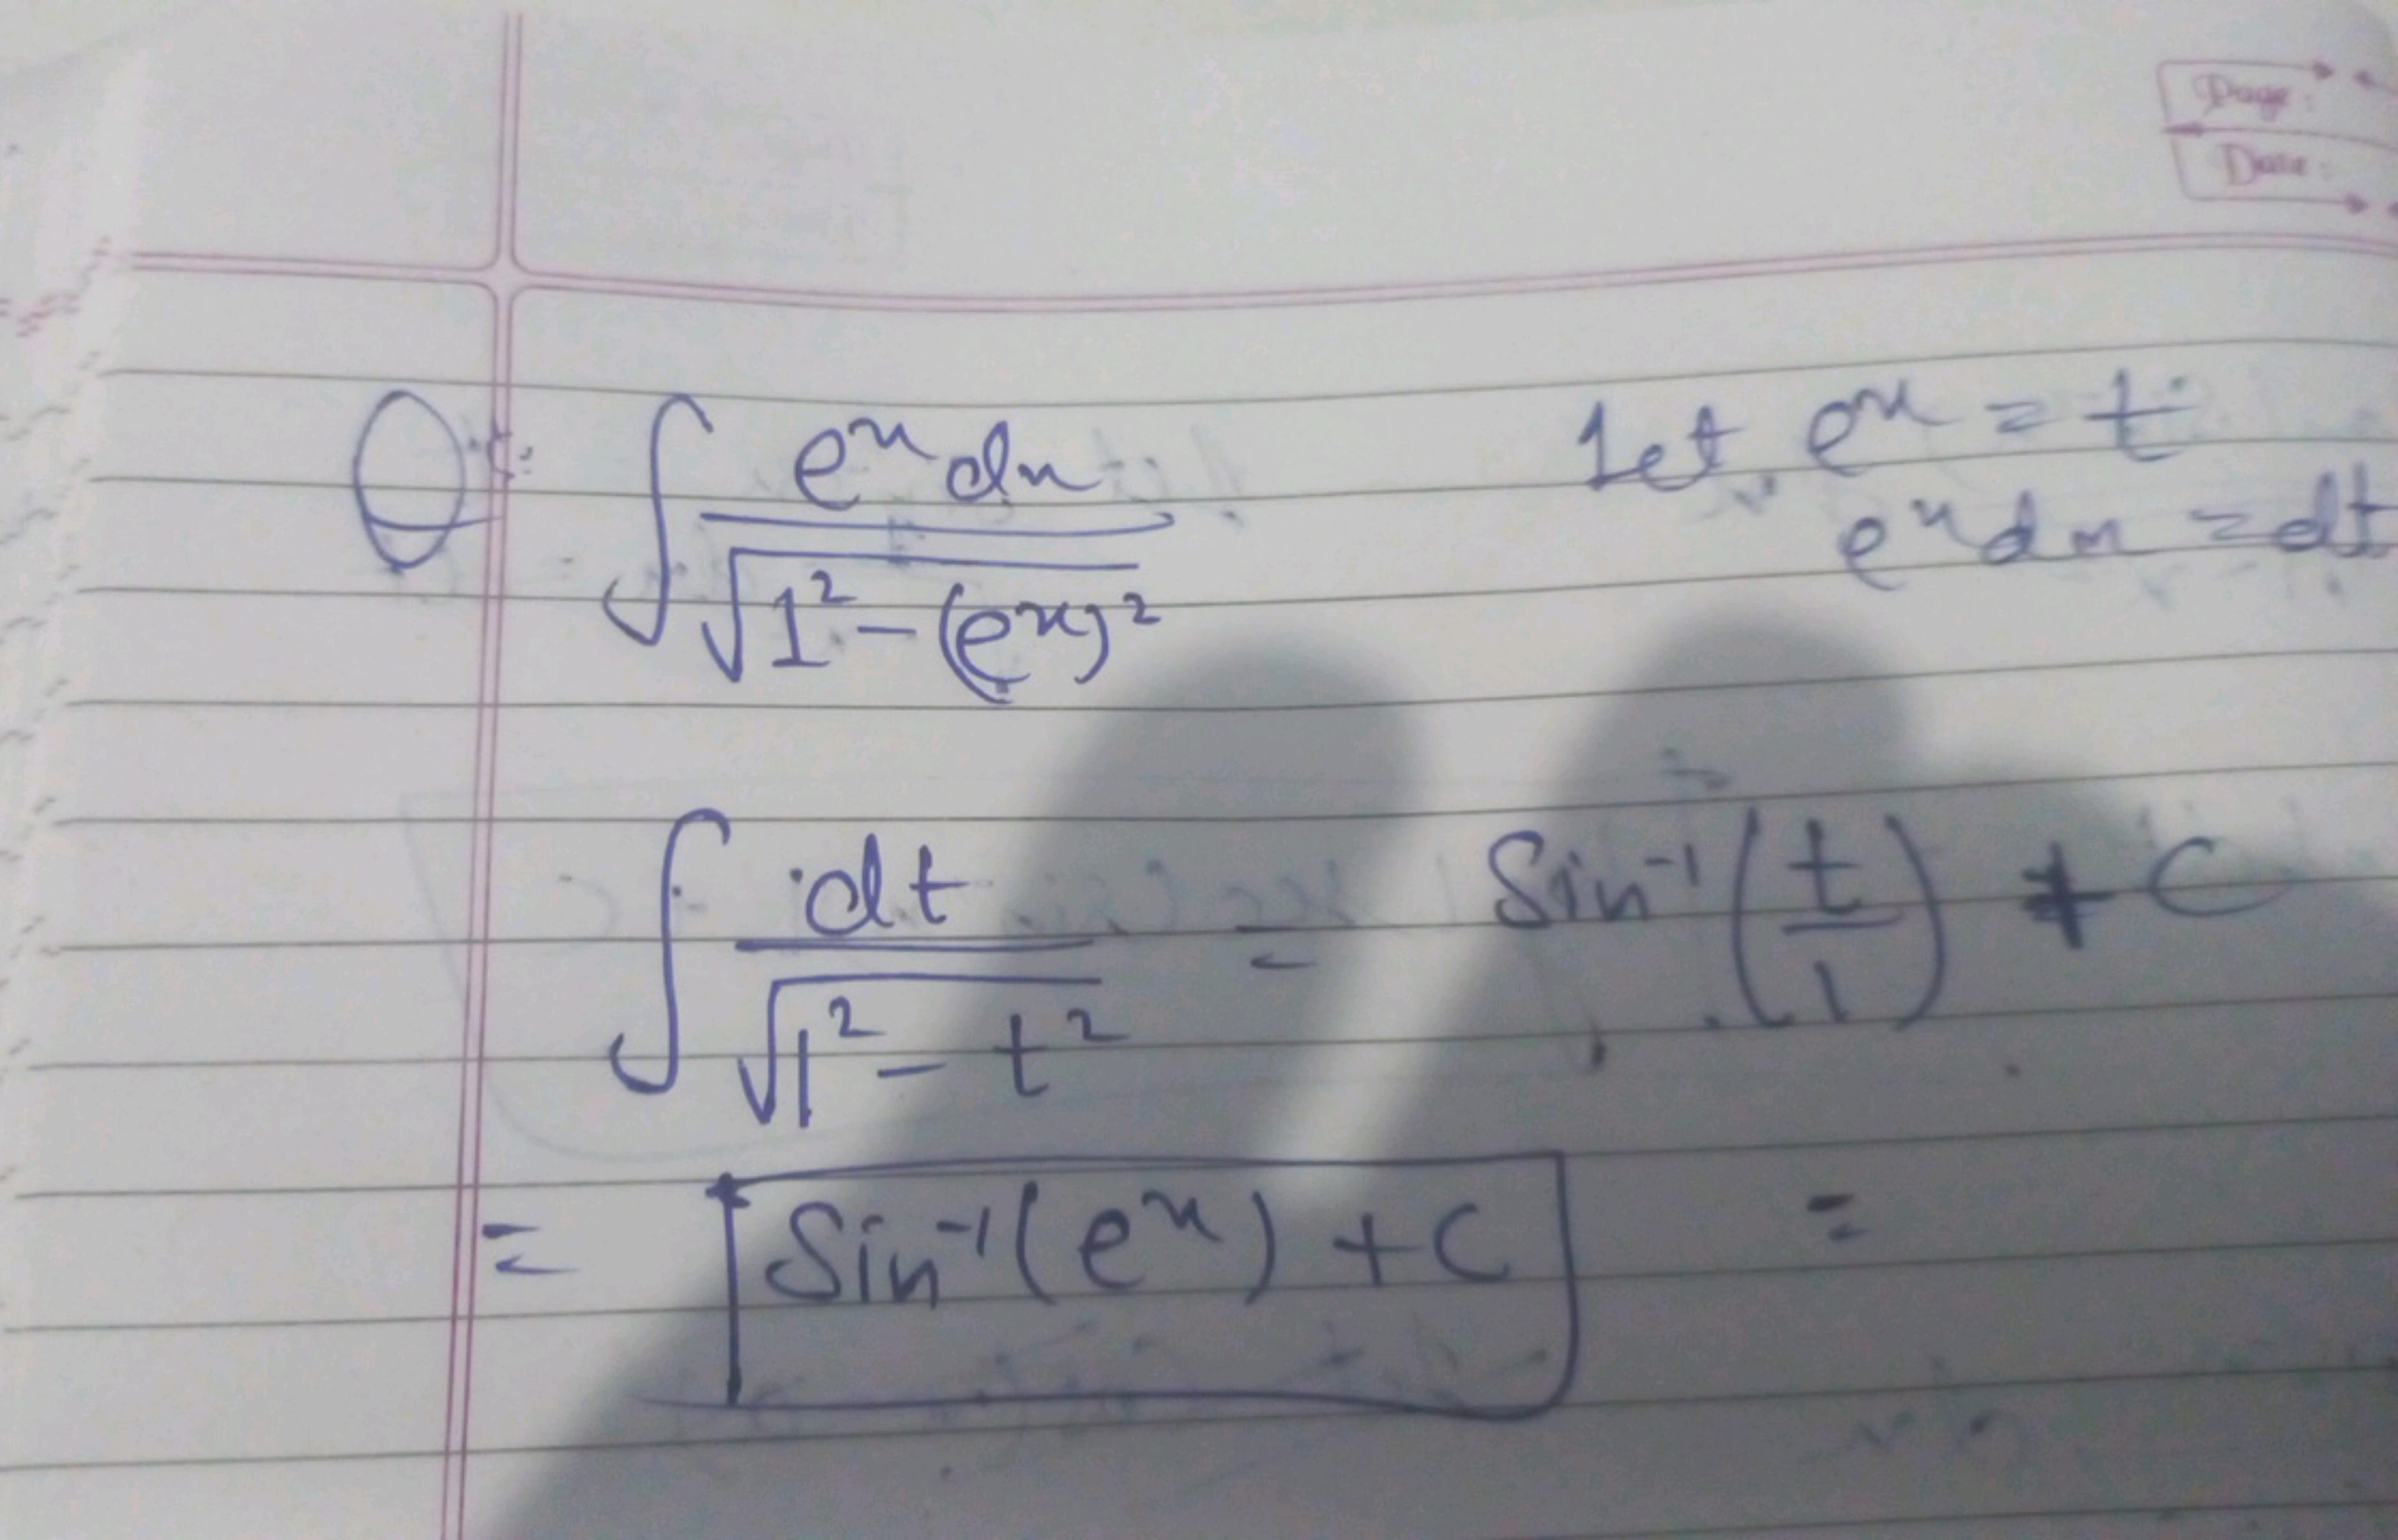 Page:
Date:
Q: ∫ eˣ dx / √(1² − (eˣ)²)
Let eˣ = t
eˣ dx = dt
∫ dt / √(1² − t²) = Sin⁻¹(t/1) + C
= Sin⁻¹(eˣ) + C =